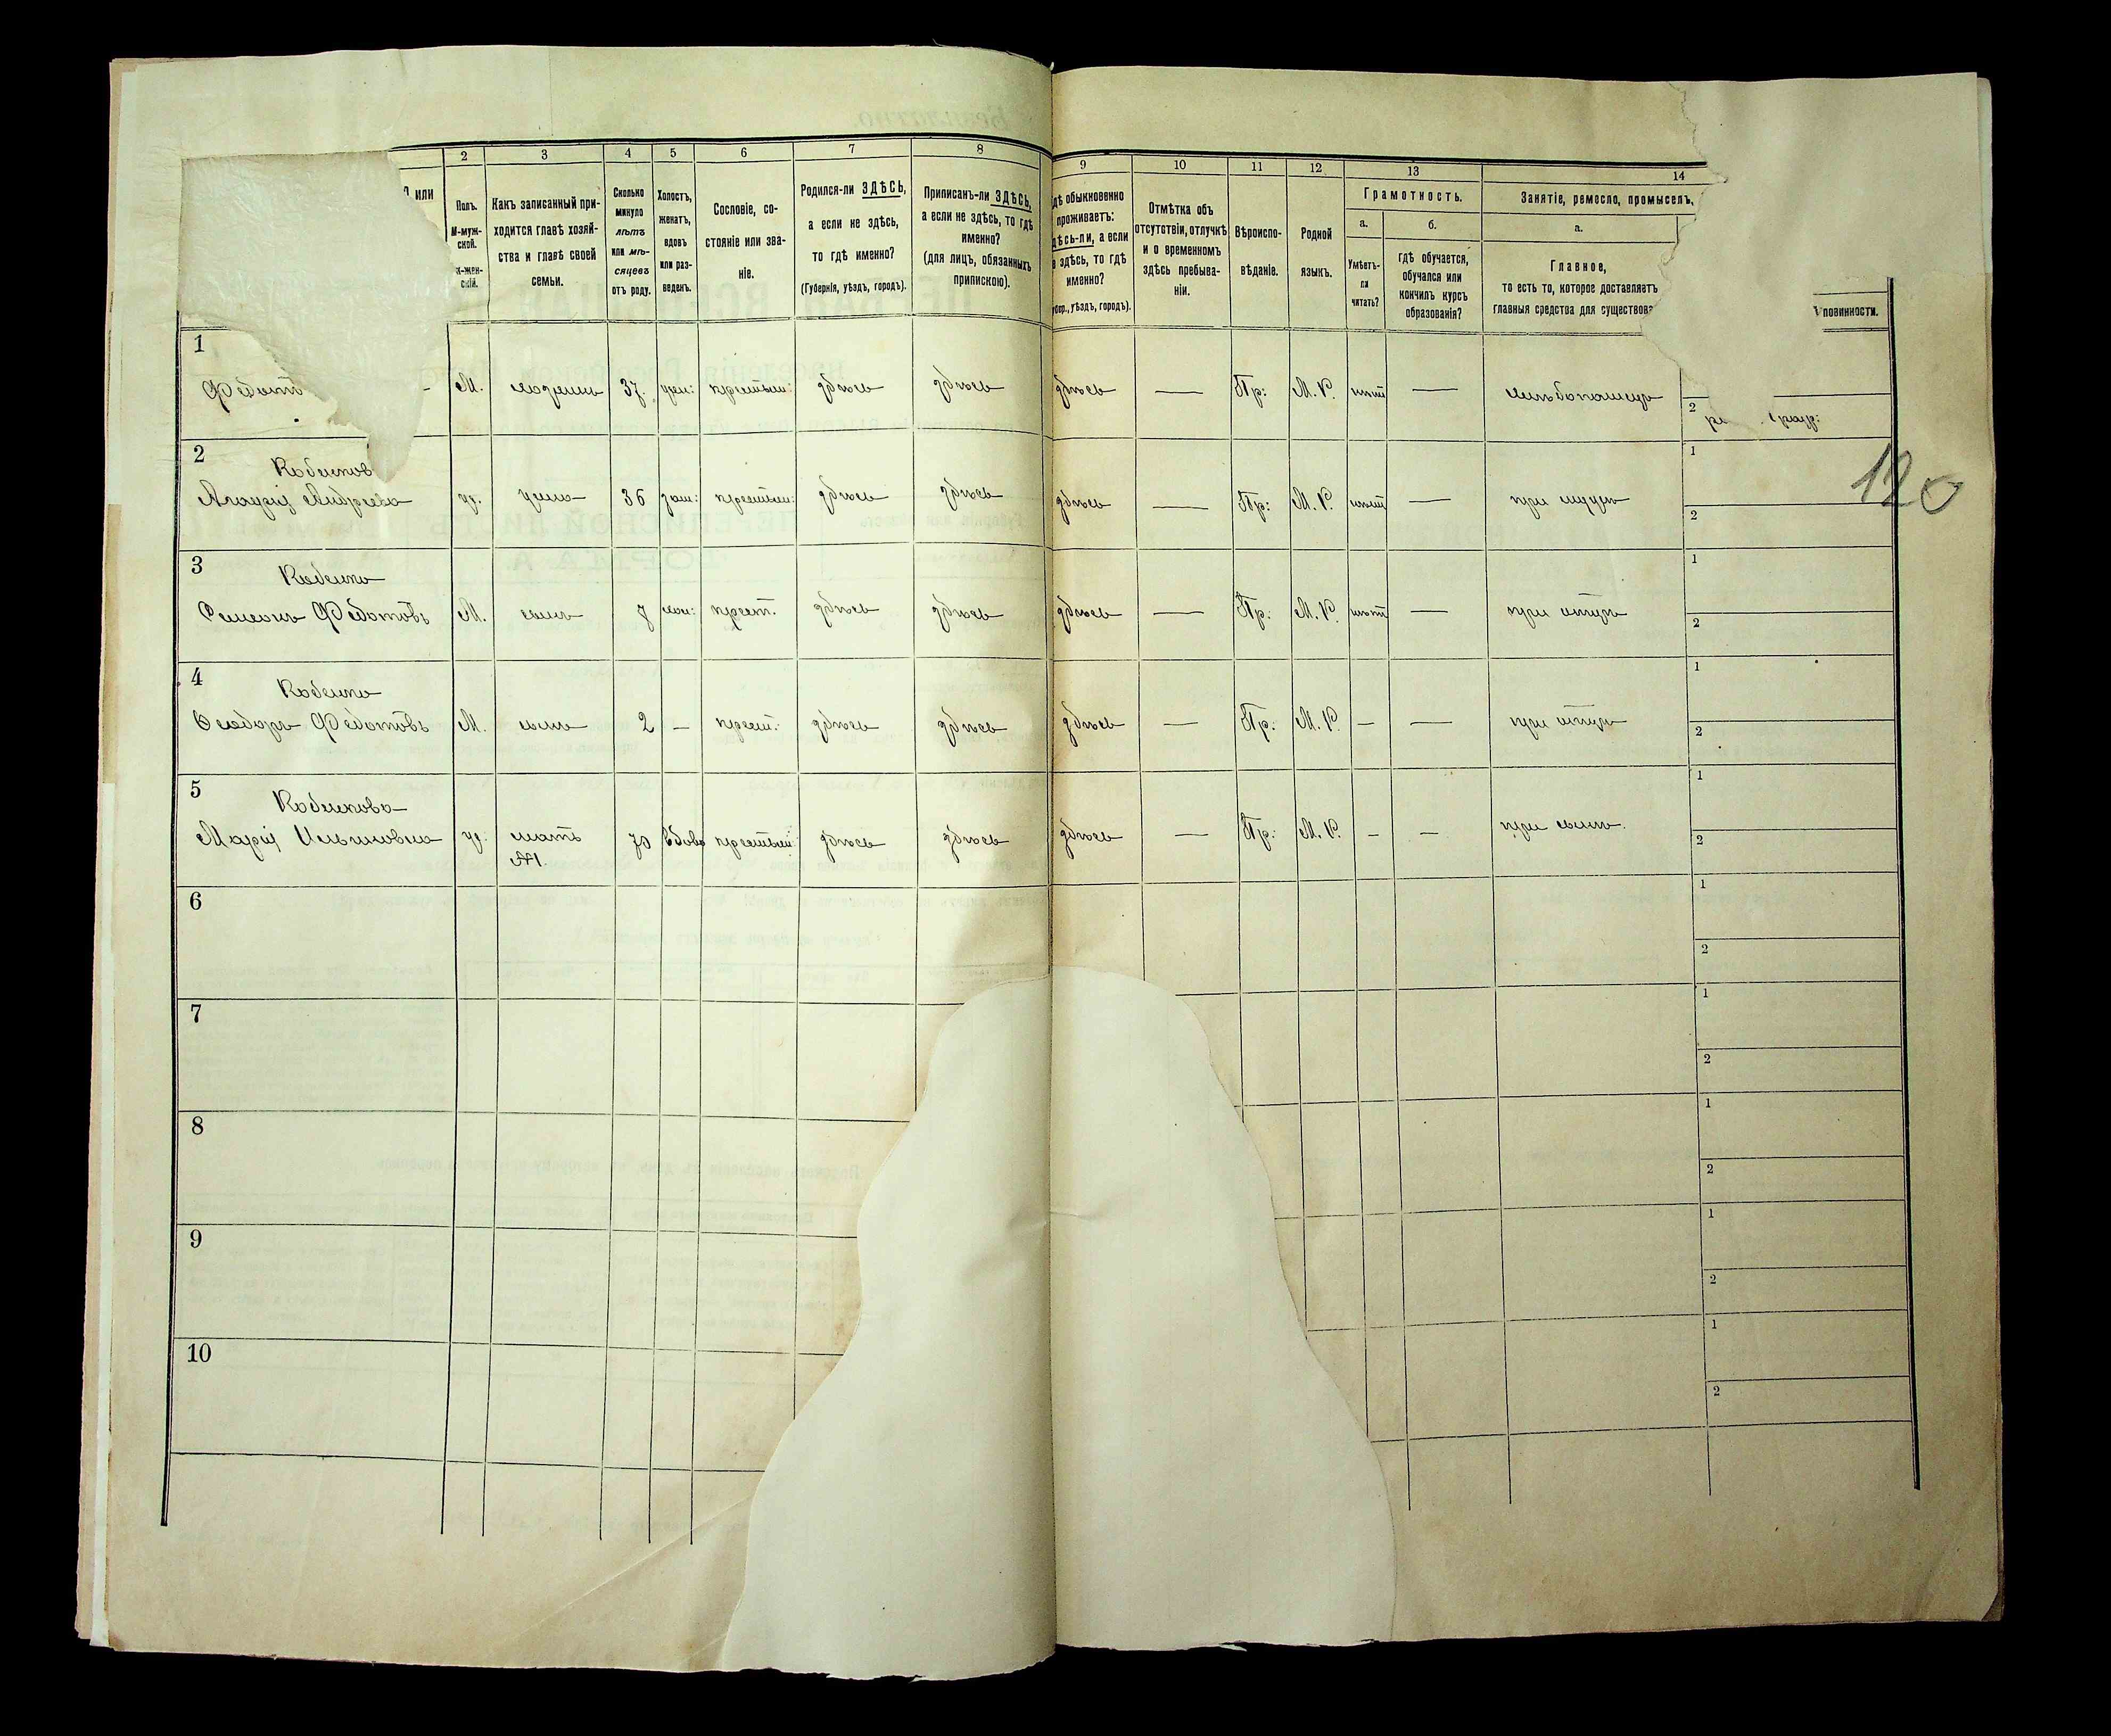 2 3 4 5 6 7 8 9 10 11 12 13 14
или
Полъ.
М-муж-
ской.
ж-жен-
скій.
Какъ записанный при-
ходится главѣ хозяй-
ства и главѣ своей
семьи.
Сколько
минуло
лѣтъ
или мѣ-
сяцевъ
отъ роду.
Холостъ,
женатъ,
вдовъ
или раз-
веденъ.
Сословіе, со-
стояніе или зва-
ніе.
Родился-ли ЗДѢСЬ,
а если не здѣсь,
то гдѣ именно?
(Губернія, уѣздъ, городъ).
Приписанъ-ли ЗДѢСЬ,
а если не здѣсь, то гдѣ
именно?
(для лицъ, обязанныхъ
припискою).
дѣ обыкновенно
проживаетъ:
дѣсь-ли, а если
е здѣсь, то гдѣ
именно?
убер., уѣздъ, городъ).
Отмѣтка объ
отсутствіи, отлучкѣ
и о временномъ
здѣсь пребыва-
ніи.
Вѣроиспо-
вѣданіе.
Родной
языкъ.
Грамотность.
а.
Умѣетъ-
ли
читать?
б.
гдѣ обучается,
обучался или
кончилъ курсъ
образованія?
Занятіе, ремесло, промыселъ,
а.
Главное,
то есть то, которое доставляетъ
главныя средства для существова
повинности.
1
Федот — М. хозяинъ 37. жен: крестьян: здѣсь здѣсь здѣсь — Пр: М. Р. нѣтъ — хлѣбопашецъ
2
2
Андреева ж. жена 36 зам: крестьян: здѣсь здѣсь здѣсь — Пр: М. Р. нѣтъ — при мужѣ
1
2
120
3
Семенъ Федотовъ М. сынъ 7 хол: крест. здѣсь здѣсь здѣсь — Пр: М. Р. нѣтъ — при отцѣ
1
2
4
Феодоръ Федотовъ М. сынъ 2 — крест. здѣсь здѣсь здѣсь — Пр: М. Р. — — при отцѣ
1
2
5
Марія ж. мать 70 вдова крестьян: здѣсь здѣсь здѣсь — Пр: М. Р. — — при сынѣ.
№1.
1
2
6
1
2
7
1
2
8
1
2
9
1
2
10
1
2